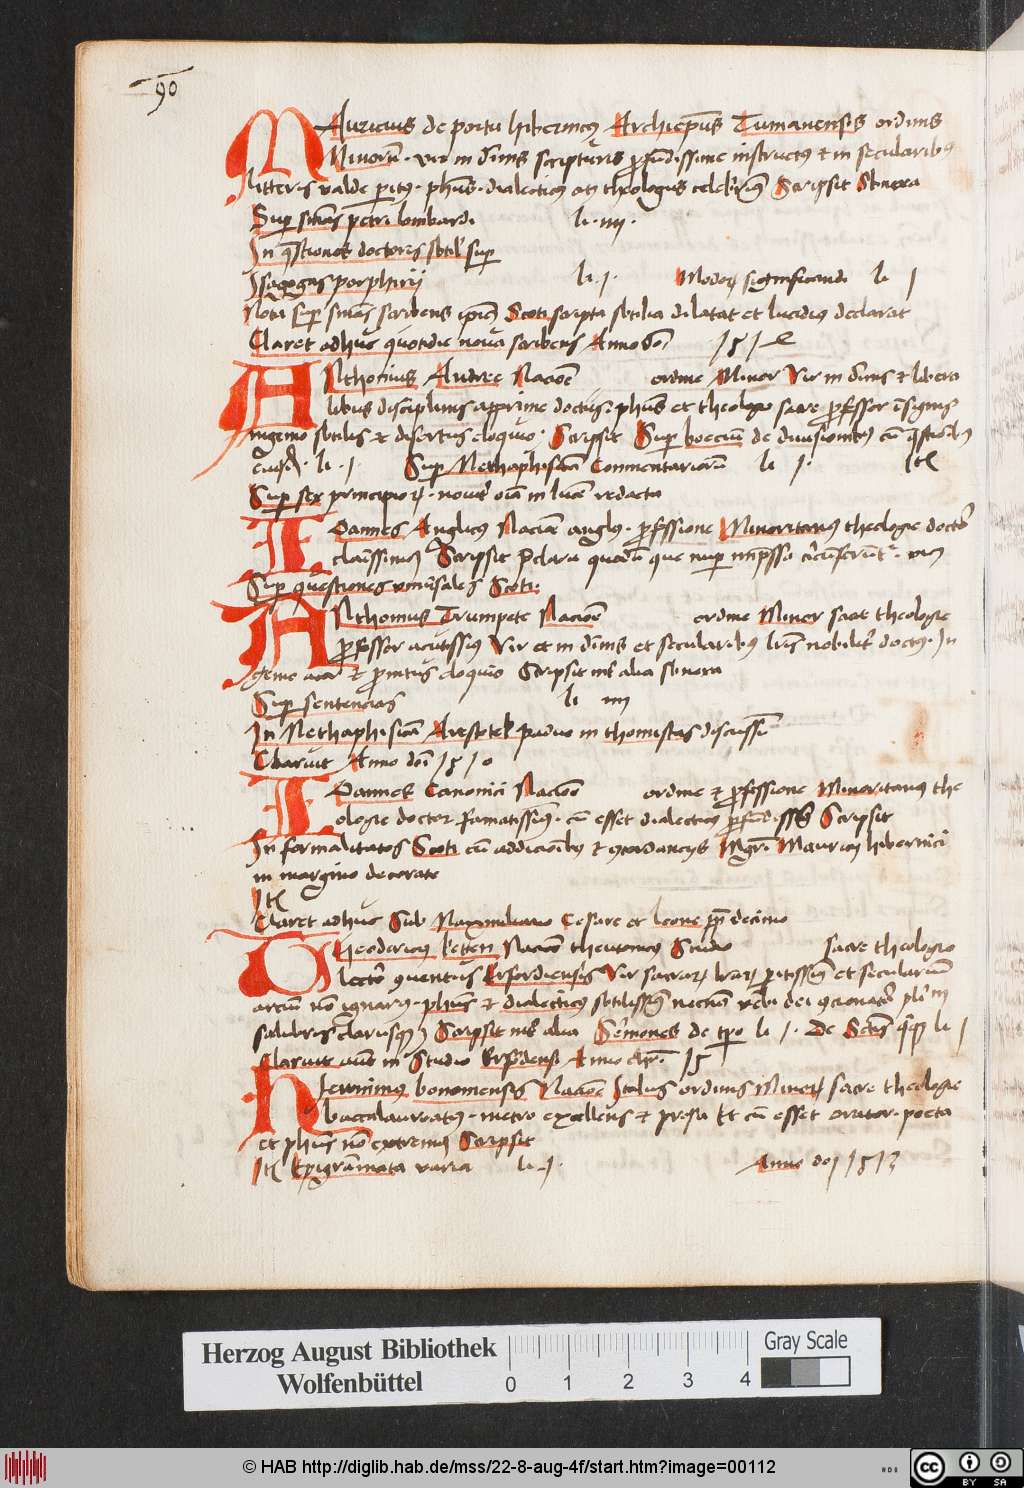 90
Mauricius de portu hibernicus Archiep̄us Tumanensis ordinis
Minorū. vir in diuinis scripturis profūdissime instructus et in secularibus
litteris valde peritus. phūs. dialecticus atque theologus celebrimus Scripsit sbnexa
Sup smās petri lombardi li. iiii.
In q̄stiones doctoris sbtil sup
Isagogas porphirii li. j. Modorum significandi li j
Nota sup smās scribens Scoti scripta sbtilia dilatat et lucidius declarat
Claret adhuc quotidie noua scribens Anno dom̄
Anthonius Andree Nacōe ordine Minor vir in diuinis et libera
libus disciplinis apprime doctus. phūs et theologie sacre professor insignis
ingenio sbtilis et disertus eloquio. Scripsit Sup boecium de diuisionibus cū q̄stionibus
li. j. Sup Methaphisicā Commentariorū li j. Itē
Sup sex principiorum. nouit in lucē redacta
Ioannes Anglicus Nacōe anglus. professione Minoritanus theologie doctor
clarissimus Scripsit p̄clara quedā que nup impssa
Sup questiones vniūsales Scoti.
Anthonius Trumpete Nacōe ordine Minor sacre theologie
professor acutissimus vir et in diuinis et secularibus lris nobiliter doctus. In
genio acer et promtus eloquio Scripsit int alia sbnexa
Sup sentencias li iiii
In Methaphisicā Arestotel padue in thomistas discussū
Claruit Anno dom̄ 1510
Ioannes Canonici Nacōe ordine et professione Minoritanus the
ologie doctor famatissimus. cum esset dialecticus Scripsit
In formalitates Scoti cū addicionibus et concordanciis Mgri Mauricii hibernici
in margine decorate
Itē
Claret adhuc Sub Maximiliano Cesare et leone pp decimo
Theodericus ketten Nacōe theutonicus Studio sacre theologie
lector conuentus Erfordiensis vir sacrarum lrarum peritissimus et secularium
artiū nō ignarus. phūs et dialecticus sbtilissimus necnon verbi dei
salubris clarusque Scripsit int alia Sermones de tpre li j. De Sctis li j
Claruit aūt in Studio Erfordensi Anno chri 15
Hieronimus bononiensis Nacōe Italus ordinis Minorum sacre theologie
baccalaureatus. metro excellens et prosa Et cū esset orator. poeta
et phūs nō extremus Scripsit
Itē Epigrāmata varia li. j. Anno do
Herzog August Bibliothek
Wolfenbüttel
0 1 2 3 4
Gray Scale
© HAB http://diglib.hab.de/mss/22-8-aug-4f/start.htm?image=00112
HAB
cc BY SA